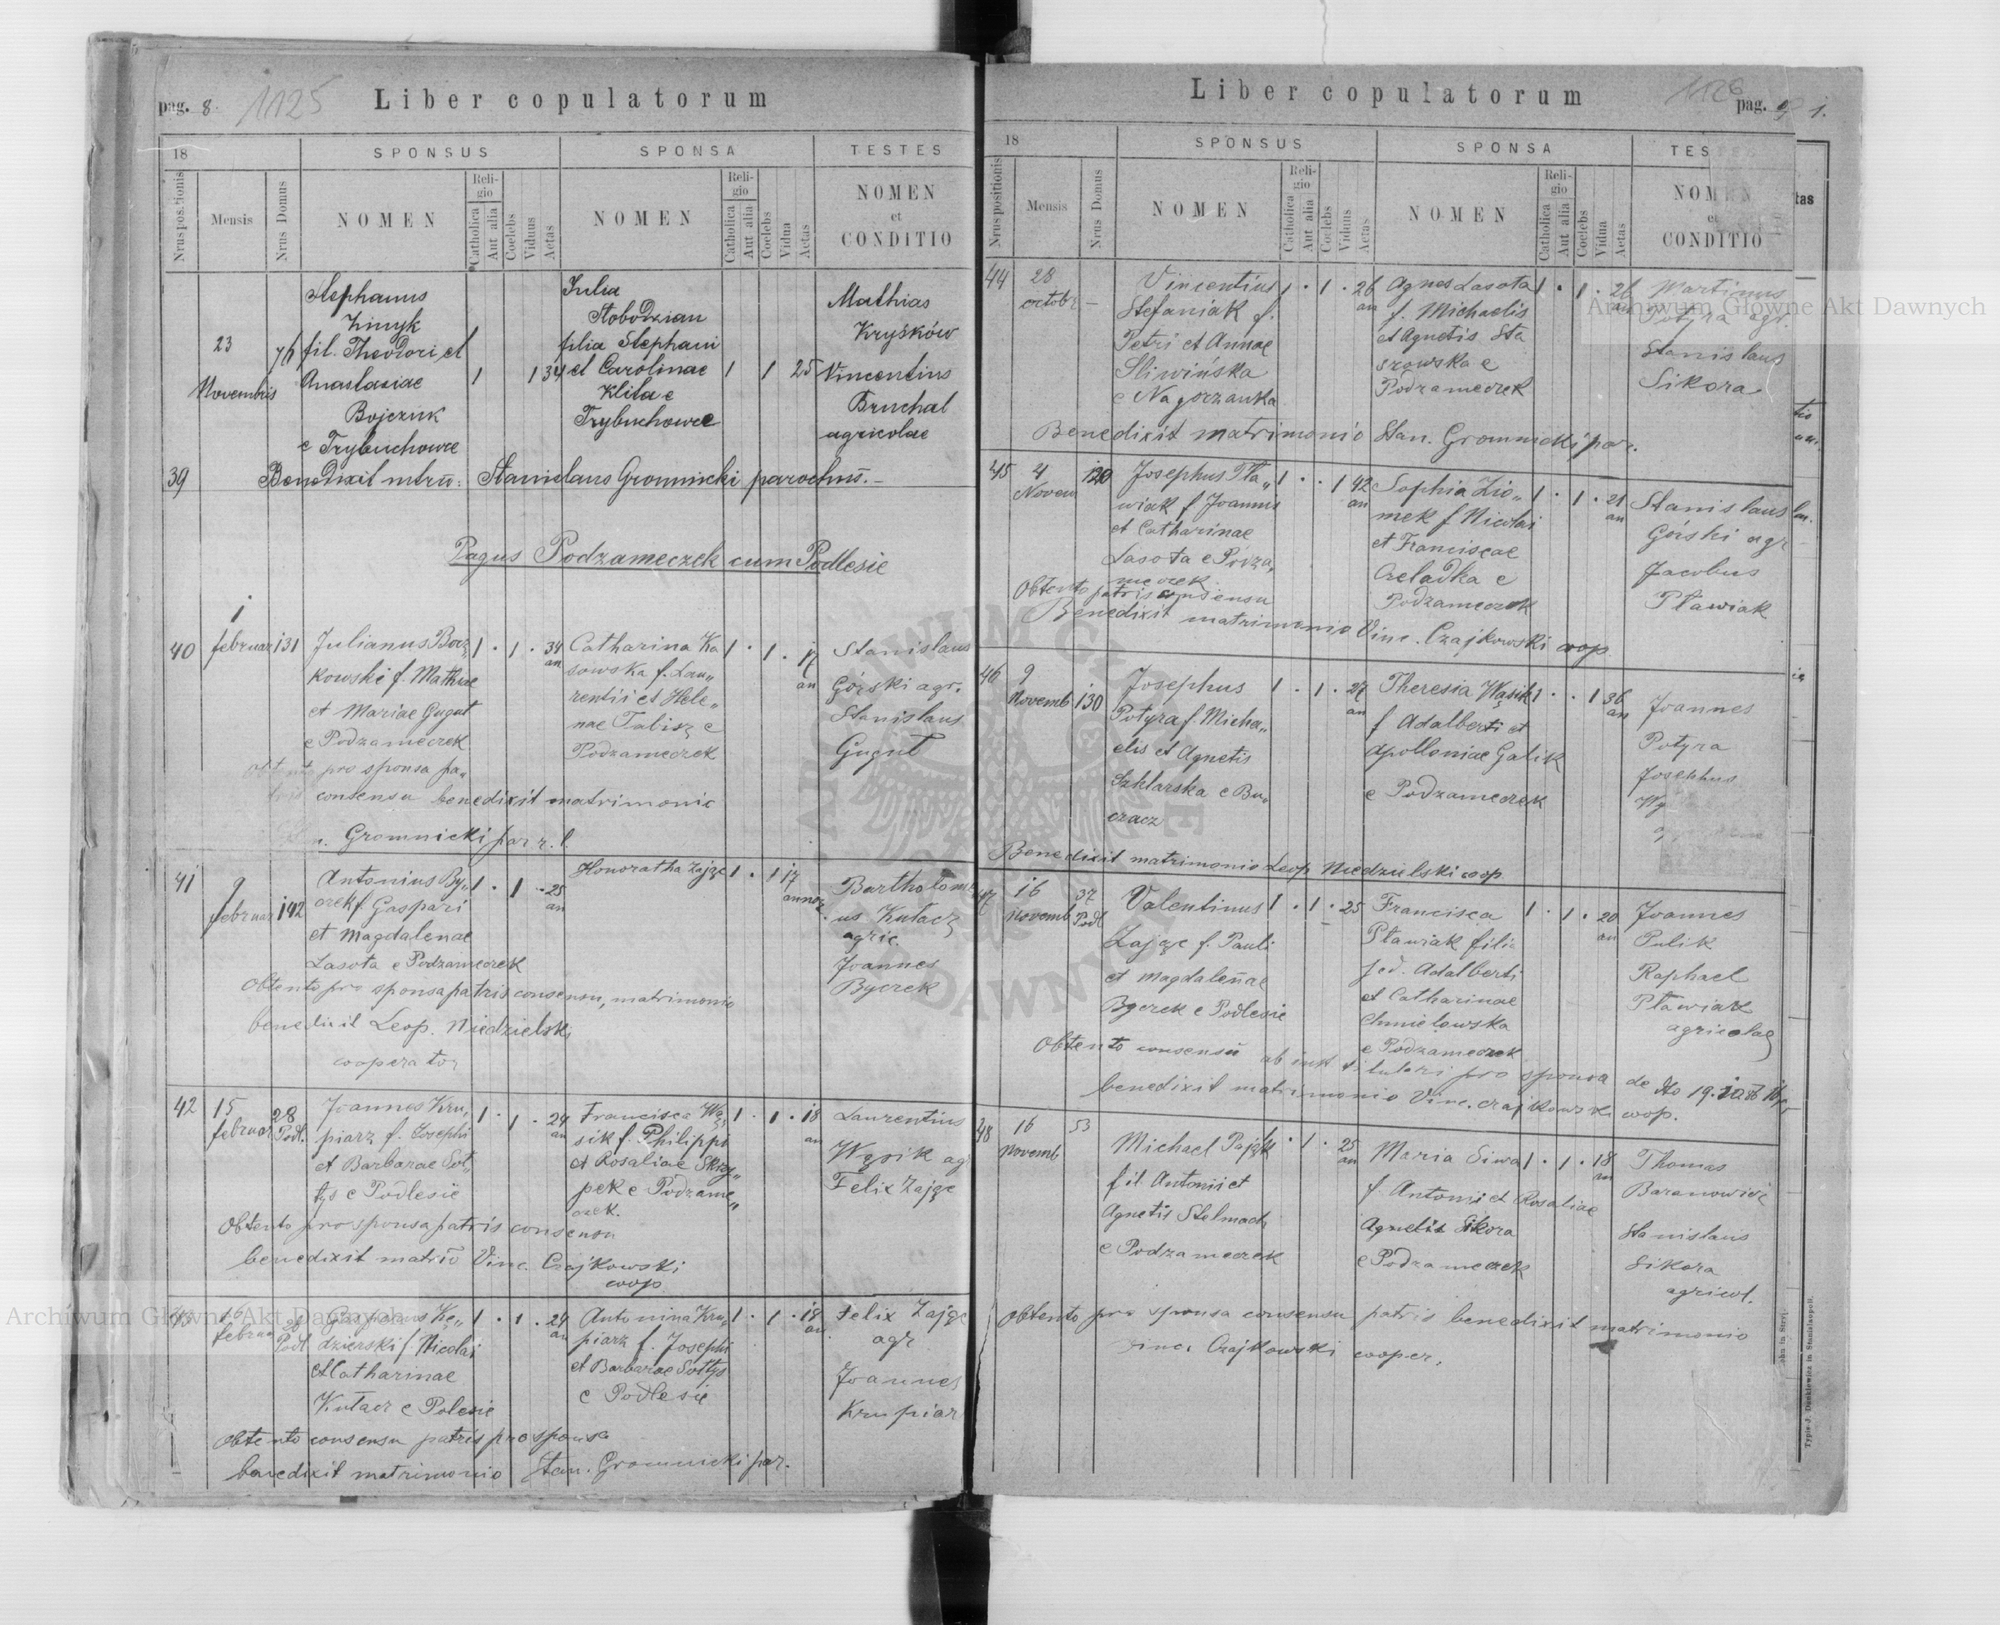 pag. 8. 1125 Liber copulatorum
18 SPONSUS SPONSA TESTES
Nrus positionis Mensis Nrus Domus NOMEN Religio Catholica Aut alia Coelebs Viduus Aetas NOMEN Religio Catholica Aut alia Coelebs Vidua Aetas NOMEN et CONDITIO
Stephanus
fil. Theodori et
Anastasiae
Bojczuk
e Trybuchowce
23
Novembris
1 1 34
Julia
Słobodzian
filia Stephani
et Carolinae
Klita e
Trybuchowce
1 1 25
Mathias
Kryśków
Vincentius
Bruchal
agricolae
39 Benedixit mtrū: Stanislaus Gromnicki parochus.
Pagus Podzameczek cum Podlesie
40 1 februar 131
Julianus Bocz
kowski f. Mathiae
et Mariae Gugut
e Podzameczek
1 . 1 . 34 an
Catharina Ka
sowska f. Lau„
rentii et Hele„
nae Talisz e
Podzameczek
1 . 1 .
Stanislaus
Górski agr.
Stanislaus
Gugut
pro sponsa pa„
consensu benedixit matrimonio
Gromnicki par r. l.
41 9 februar 142
Antonius By„
czek f Gaspari
et Magdalenae
Lasota e Podzameczek
1 . 1 . 25 an
Honoratha Zając 1 . 1 17 annor
Bartholome
us Kułacz
agric.
Joannes
Byczek
Obtento pro sponsa patris consensu, matrimonio
benedixit Leop. Niedzielski
cooperator
42 15 februar 28 Podl.
Joannes Kru„
piarz f. Josephi
et Barbarae Soł„
tys e Podlesie
1 . 1 . 24 an
Francisca Wą
sik f. Philippi
et Rosaliae Skrzy„
pek e Podzame„
czek.
1 . 1 . 18 an
Laurentius
Wąsik ag
Felix Zając
Obtento pro sponsa patris consensu
benedixit matrio Vinc. Czajkowski
coop
43 16 februar 28 Podl
Gasparus Kę„
dzierski f. Nicolai
et Catharinae
Kułacz e Polesie
1 . 1 . 24 an
Antonina Kru„
piarz f. Josephi
et Barbarae Sołtys
e Podlesie
1 . 1 . 18 an
Felix Zając
agr
Joannes
Krupiar
Obtento consensu patris pro sponsa
benedixit matrimonio Stan. Gromnicki par.
Liber copulatorum 1126 pag. 9
18 SPONSUS SPONSA TES
Nrus positionis Mensis Nrus Domus NOMEN Religio Catholica Aut alia Coelebs Viduus Aetas NOMEN Religio Catholica Aut alia Coelebs Vidua Aetas NOMEN et CONDITIO
tas
44 28 octobr –
Vincentius
Stefaniak f.
Petri et Annae
Sliwińska
e Nagorzanka
1 . 1 . 26 an
Agnes Lasota
f. Michaelis
et Agnetis Sta
szowska e
Podzameczek
1 . 1 . 26 an
Martinus
Potyra agr.
Stanislaus
Sikora
Benedixit matrimonio Stan. Gromnicki par.
45 4 Novem 120
Josephus Pła„
wiak f Joannis
et Catharinae
Lasota e Podza„
meczek
1 . . 1 42 an
Sophia Zio„
mek f Nicolai
et Franciscae
Czeladka e
Podzameczek
1 . 1 . 21 an
Stanislaus
Górski agr
Jacobus
Pławiak
Obtento patris consensu
Benedixit matrimonio Vinc. Czajkowski coop
46 9 Novemb 130
Josephus
Potyra f. Micha„
elis et Agnetis
Szklarska e Bu„
czacz
1 . 1 . 27 an
Theresia Wąsik
f Adalberti et
Apolloniae Galik
e Podzameczek
1 . . 1 36 an
Joannes
Potyra
Josephus
Benedixit matrimonio Leop Niedzielski coop
47 16 Novemb 37 Podl
Valentinus
Zając f. Pauli
et Magdalenae
Byczek e Podlesie
1 . 1 . 25
Francisca
Pławiak fili
Adalberti
et Catharinae
Chmielowska
e Podzameczek
1 . 1 . 20 an
Joannes
Pulik
Raphael
Pławiak
agricolae
Obtento consensu ab inst tutelari pro sponsa de dto 19.
benedixit matrimonio Vinc. Czajkowski coop.
48 16 Novemb 53
Michael Pająk
fil Antonii et
Agnetis Stelmach
e Podzameczek
1 . 1 . 25 an
Maria Siwa
f. Antoni et Rosaliae
Agnetis Sikora
e Podzameczek
1 . 1 . 18 an
Thomas
Baranowicz
Stanislaus
Sikora
agricol.
Obtento pro sponsa consensu patris benedixit matrimonio
Vinc. Czajkowski cooper.
Typis J. Dankiewicz in Stanislaupoli.
Archiwum Główne Akt Dawnych
Archiwum Główne Akt Dawnych